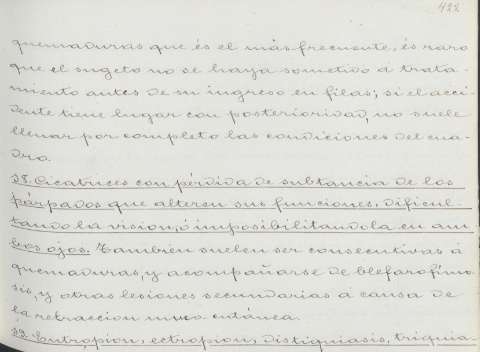 422
quemaduras que és el más frecuente, és raro
que el sugeto no se haya sometido á trata-
miento antes de su ingreso en filas; si el acci-
dente tiene lugar con posterioridad, no suele
llenar por completo las condiciones del cua-
dro.
58. Cicatrices con pérdida de substancia de los
párpados que alteren sus funciones, dificul-
tando la vision, ó imposibilitandola en am-
bos ojos. Tambien suelen ser consecutivas á
quemaduras, y acompañarse de blefarofimo
sis, y otras lesiones secundarias á causa de
la retraccion muco cutánea.
59. Entropion, ectropion, distiquiasis, triquia-